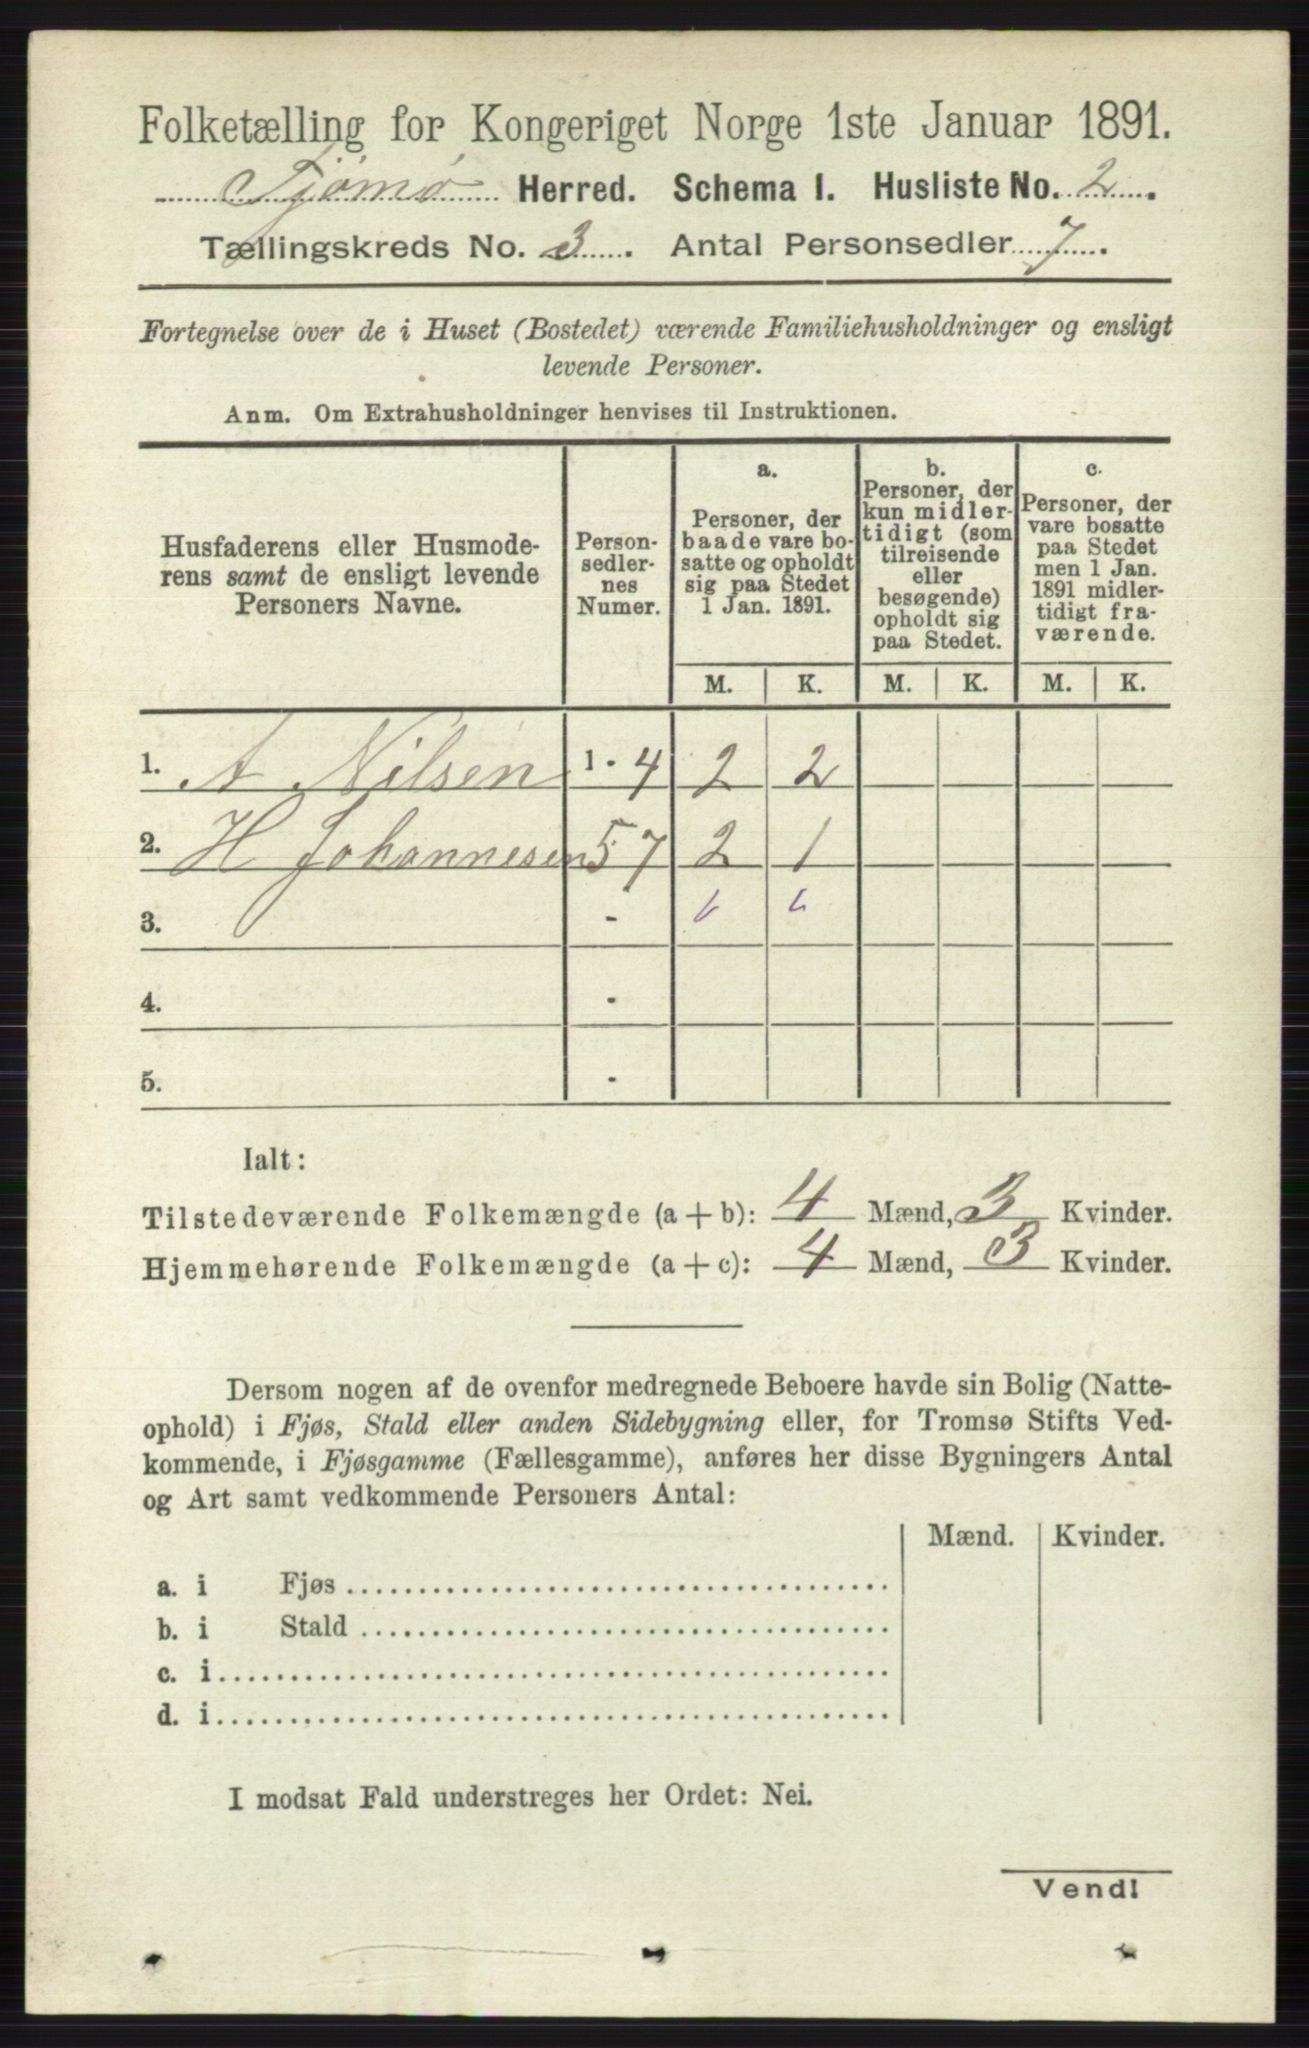 Folketælling for Kongeriget Norge 1ste Januar 1891.
Tjömö Herred. Schema I. Husliste No. 2.
Tællingskreds No. 3. Antal Personsedler 7.
Fortegnelse over de i Huset (Bostedet) værende Familiehusholdninger og ensligt
levende Personer.
Anm. Om Extrahusholdninger henvises til Instruktionen.
Husfaderens eller Husmode-
rens samt de ensligt levende
Personers Navne.
Person-
sedler-
nes
Numer.
a.
Personer, der
baade vare bo-
satte og opholdt
sig paa Stedet
1 Jan. 1891.
b.
Personer, der
kun midler-
tidigt (som
tilreisende
eller
besøgende)
opholdt sig
paa Stedet.
c.
Personer, der
vare bosatte
paa Stedet
men 1 Jan.
1891 midler-
tidigt fra-
værende.
M. K. M. K. M. K.
1. A Nilsen 1 - 4 2 2
2. H Johannesen 5 7 2 1
3. -
4. -
5. -
Ialt:
Tilstedeværende Folkemængde (a + b): 4 Mænd, 3 Kvinder.
Hjemmehørende Folkemængde (a + c): 4 Mænd, 3 Kvinder.
Dersom nogen af de ovenfor medregnede Beboere havde sin Bolig (Natte-
ophold) i Fjøs, Stald eller anden Sidebygning eller, for Tromsø Stifts Ved-
kommende, i Fjøsgamme (Fællesgamme), anføres her disse Bygningers Antal
og Art samt vedkommende Personers Antal:
Mænd. Kvinder.
a. i Fjøs
b. i Stald
c. i
d. i
I modsat Fald understreges her Ordet: Nei.
Vend!